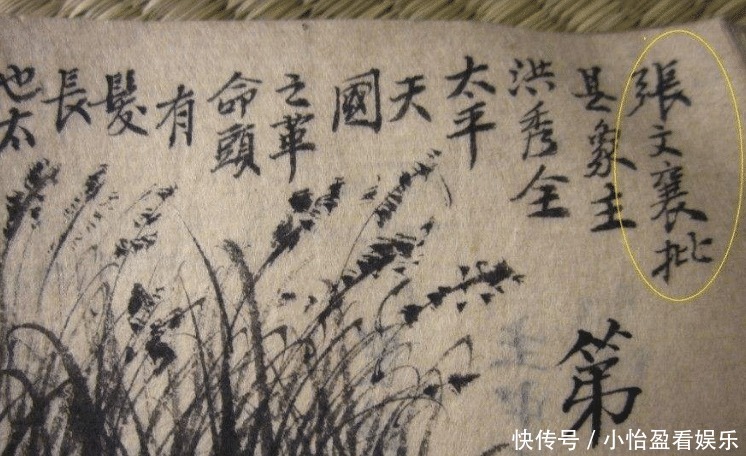 張文襄批
其象主
洪秀全
太平
天
國
之革
命頭
有
髮
長
也太
第
快传号 / 小怡盈看娱乐